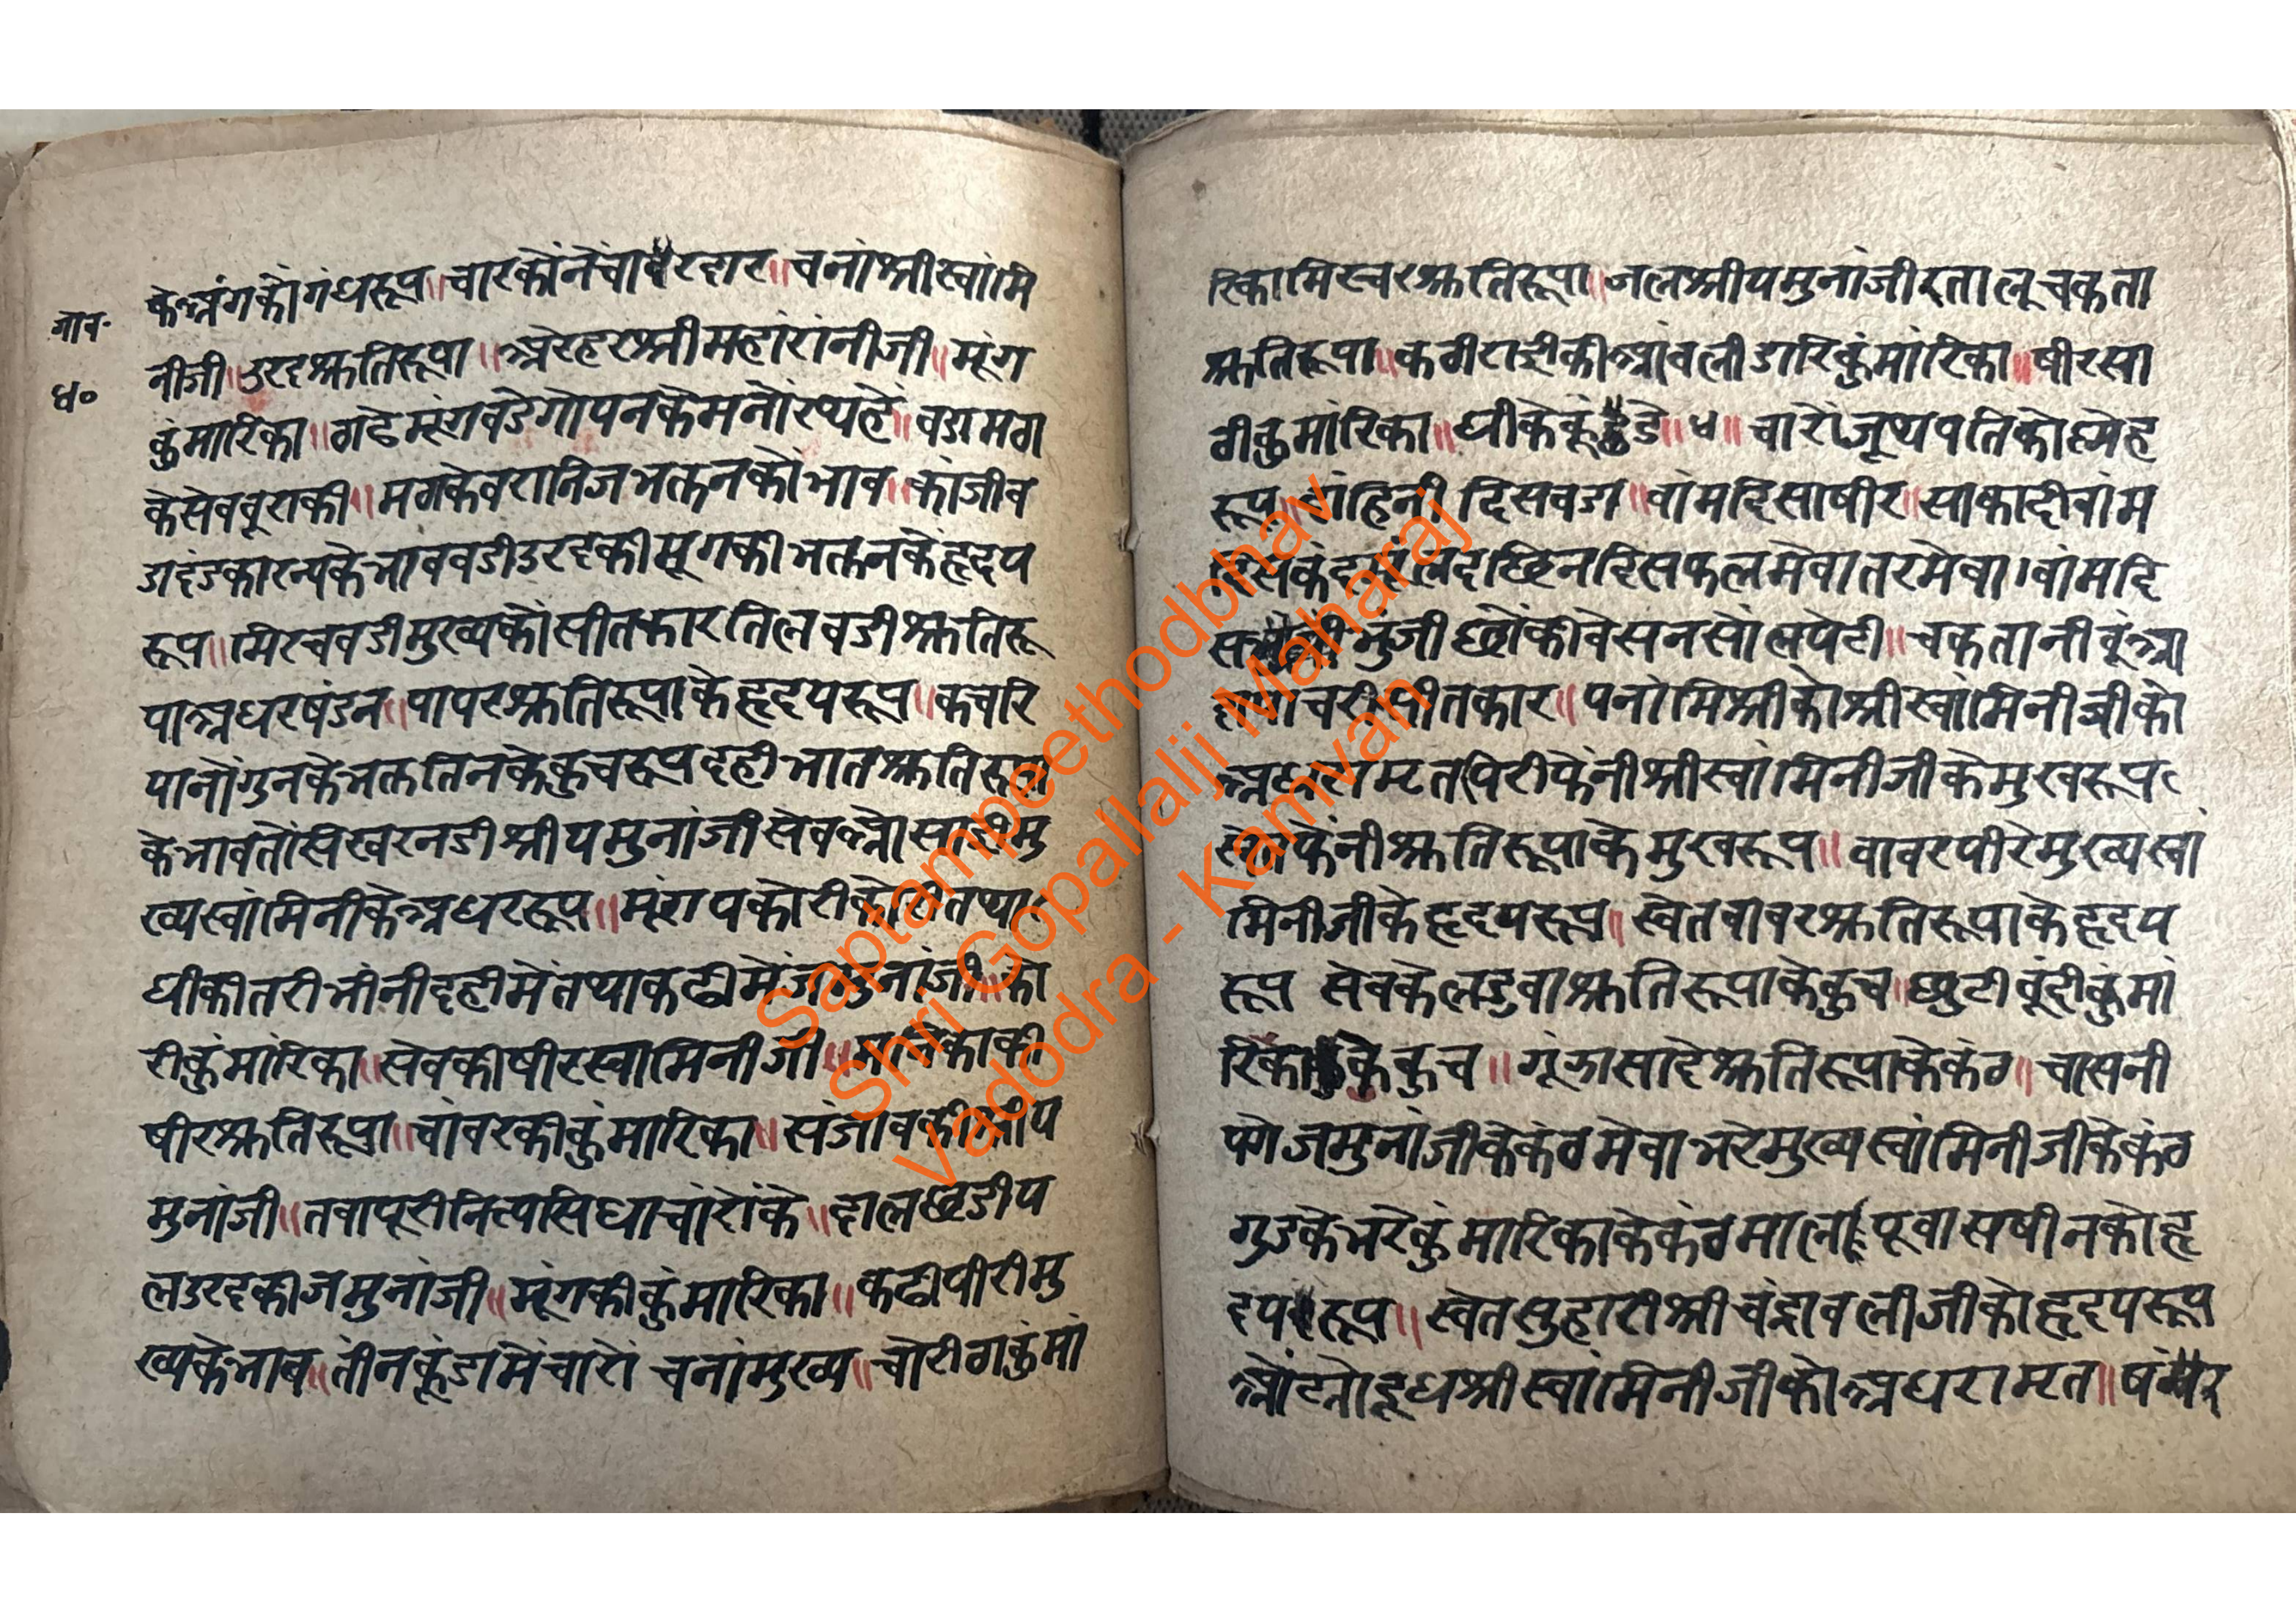 भाव॰
४०
के अंगको गंधरूप॥ चारकोंनेचांवरदार॥ चनांश्रीस्वांमि
नीजी॥ उरदश्रुतिरूपा॥ अरहरश्रीमहांरांनीजी॥ मूंग
कुंमारिका॥ गढेमूंगबडेगोपनकेमनोंरथहे॥ बडामग
केसेवबूराकी॥ मगकेबरानिजभक्तनकोंभाव॥ कांजीब
डाइंडकारन्यकेभावबडीउरदकीमूगकीभक्तनकेहृदय
रूप॥ मिरचबडीमुख्यकोंसीतकारतिलबडीश्रुतिरू
पाअधरषंडन॥ पापरश्रुतिरूपाकेहृदयरूप॥ कचरि
पानोंगुनकेभक्ततिनकेकुचरूपदहीभातश्रुतिरूपा
केभावतोंसिखरनडीश्रीयमुनांजीसेव मु
ख्यस्वांमिनीकेअधररूप॥ मूंगपकोरीकोरीतथा
घीकीतरीभींनीदहीमेंतथाकढीमेंजमुनांजी॥ को
रीकुंमारिका॥ सेवकीषीरस्वामिनीजी॥ की
षीरश्रुतिरूपा॥ चांवरकीकुंमारिका॥ संजाबकीश्रीय
मुनांजी॥ तवापूरीनित्यसिधाचांरोंके॥ दालछडीय
लउरदकीजमुनांजी॥ मूंगकीकुंमारिका॥ कढीपीरीमु
ख्यकेभाव॥ तींनकूंडामेंचारों चनांमुख्य॥ चोरीगकुंमां
रिकामिस्वरश्रुतिरूपा॥ जलश्रीयमुनांजीरतालूचकता
श्रुतिरूपा॥ कठीराईकीआंवलीडारिकुंमांरिका॥ षीरसा
गीकुमांरिका॥ घीकेकूंडे॥ ४॥ चारोंजूथपतिकोस्नेह
रूप॥ दांहिनीदिसबडा॥ वांमदिसाषीर॥ साकादीवांम
दिस दछिनदिसफलमेवातरमेवा। वांमदि
स भुजीछोंकीबेसनसोंलपेटी॥ चकतानीबूंआ
दापाचरीसीतकार॥ पनांमिश्रीकोश्रीस्वांमिनीजीको
पिरीफेंनीश्रीस्वांमिनीजीकेमुखरूप
सेतफेंनीश्रुतिरूपाकेमुखरूप॥ बाबरपीरेमुख्यस्वां
मिनीजीकेहृदयरूप॥ स्वेतबाबरश्रुतिरूपाकेहृदय
रूप सेवकेलडुवाश्रुतिरूपाकेकुच॥ छुटीबूंदीकुंमां
रिकाकेकुच॥ गूंझासादेश्रुतिरूपाकेकंठ॥ चासनी
पगे जमुनांजीकेकंठमेवाभरेमुख्यस्वांमिनीजीकेकंठ
गुडकेभरेकुंमारिकाकेकंठमालपूवासषीनकोहृ
दयरूप॥ स्वेतसुहारीश्रीचंद्रावलीजीकोहृदयरूप
ओंट्योदूधश्रीस्वांमिनीजीकोअधरामृत॥